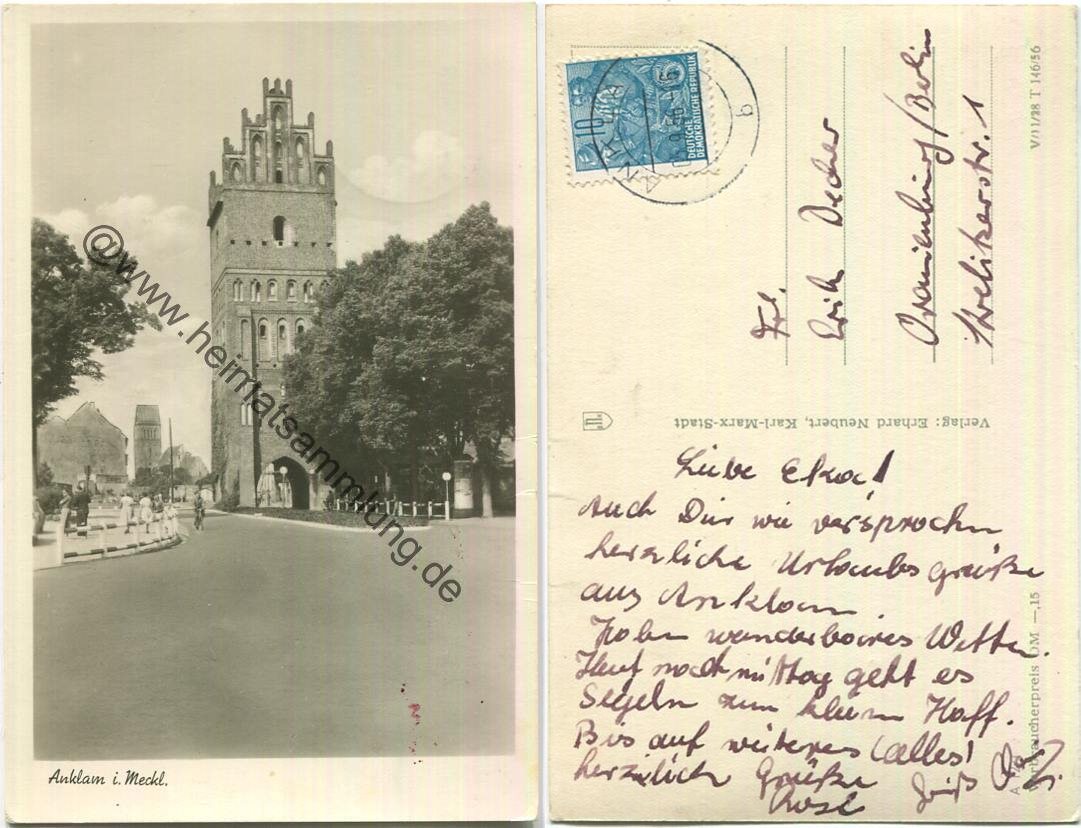 Anklam i. Meckl.
@www.heimatsammlung.de
10
DEUTSCHE
DEMOKRATISCHE REPUBLIK
Frl.
Erika Decher
Oranienburg/Berlin
Strelitzerstr. 1
V/11/28 T 146/56
Verlag: Erhard Neubert, Karl-Marx-Stadt
Liebe Erka!
Auch Dir wie versprochen
herzliche Urlaubsgrüße
aus Anklam.
Haben wunderbares Wetter.
Heut nachmittag geht es
Segeln zum kleinen Haff.
Bis auf weiteres (alles!
herzlich Grüße
Verbraucherpreis DM —,15